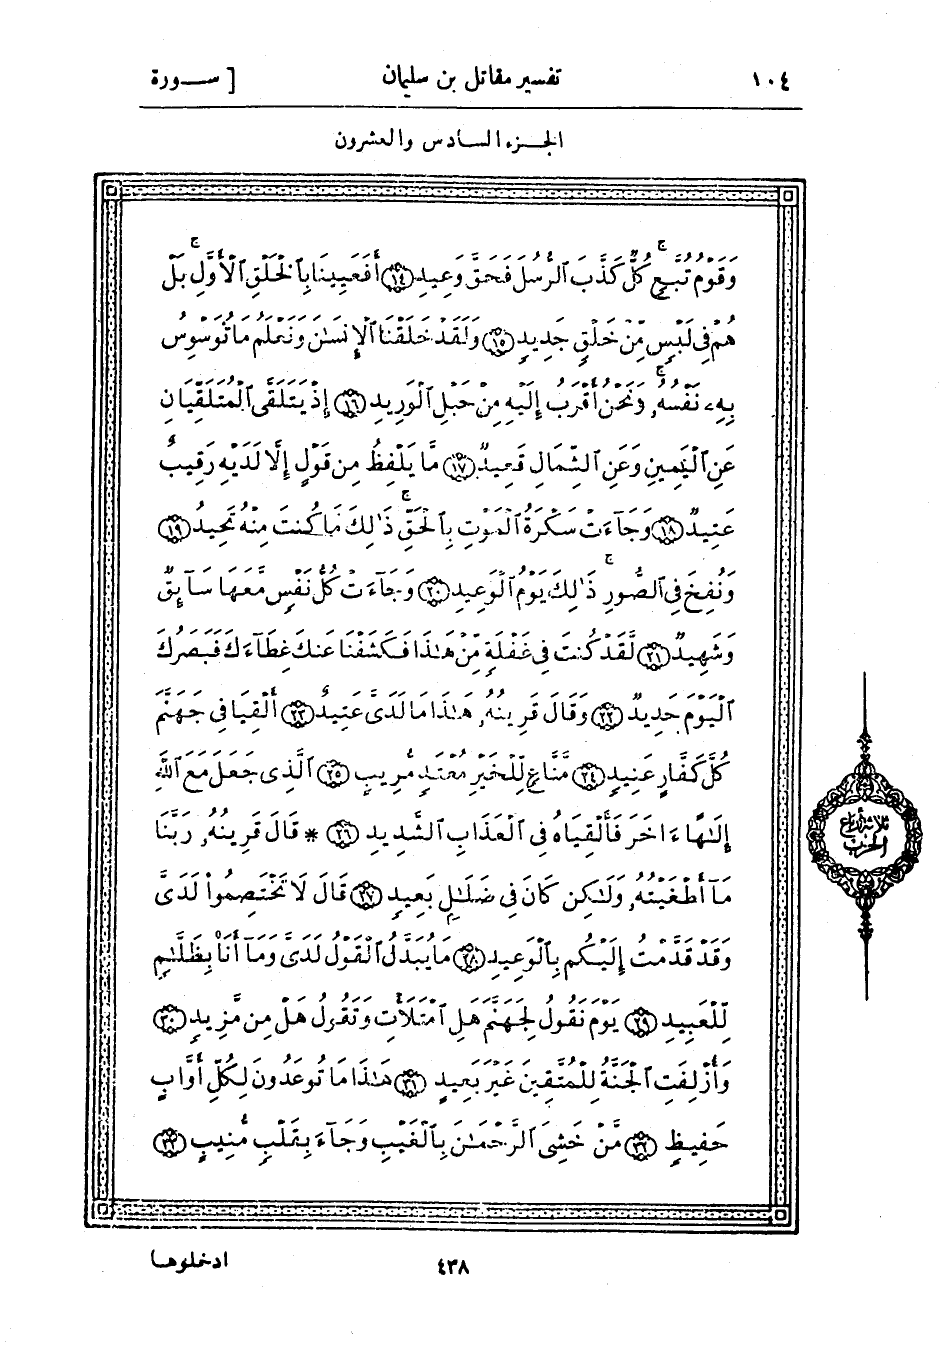 ١٠٤ تفسير مقاتل بن سليمان [ ســورة
الجــزء الســادس والعشرون
وَقَوْمُ تُبَّعٍ ۚ كُلٌّ كَذَّبَ ٱلرُّسُلَ فَحَقَّ وَعِيدِ ١٤ أَفَعَيِينَا بِٱلْخَلْقِ ٱلْأَوَّلِ ۚ بَلْ
هُمْ فِى لَبْسٍ مِّنْ خَلْقٍ جَدِيدٍ ١٥ وَلَقَدْ خَلَقْنَا ٱلْإِنسَٰنَ وَنَعْلَمُ مَا تُوَسْوِسُ
بِهِۦ نَفْسُهُۥ ۖ وَنَحْنُ أَقْرَبُ إِلَيْهِ مِنْ حَبْلِ ٱلْوَرِيدِ ١٦ إِذْ يَتَلَقَّى ٱلْمُتَلَقِّيَانِ
عَنِ ٱلْيَمِينِ وَعَنِ ٱلشِّمَالِ قَعِيدٌ ١٧ مَّا يَلْفِظُ مِن قَوْلٍ إِلَّا لَدَيْهِ رَقِيبٌ
عَتِيدٌ ١٨ وَجَآءَتْ سَكْرَةُ ٱلْمَوْتِ بِٱلْحَقِّ ۚ ذَٰلِكَ مَا كُنتَ مِنْهُ تَحِيدُ ١٩
وَنُفِخَ فِى ٱلصُّورِ ۚ ذَٰلِكَ يَوْمُ ٱلْوَعِيدِ ٢٠ وَجَآءَتْ كُلُّ نَفْسٍ مَّعَهَا سَآئِقٌ
وَشَهِيدٌ ٢١ لَّقَدْ كُنتَ فِى غَفْلَةٍ مِّنْ هَٰذَا فَكَشَفْنَا عَنكَ غِطَآءَكَ فَبَصَرُكَ
ٱلْيَوْمَ حَدِيدٌ ٢٢ وَقَالَ قَرِينُهُۥ هَٰذَا مَا لَدَىَّ عَتِيدٌ ٢٣ أَلْقِيَا فِى جَهَنَّمَ
كُلَّ كَفَّارٍ عَنِيدٍ ٢٤ مَّنَّاعٍ لِّلْخَيْرِ مُعْتَدٍ مُّرِيبٍ ٢٥ ٱلَّذِى جَعَلَ مَعَ ٱللَّهِ
إِلَٰهًا ءَاخَرَ فَأَلْقِيَاهُ فِى ٱلْعَذَابِ ٱلشَّدِيدِ ٢٦ * قَالَ قَرِينُهُۥ رَبَّنَا
مَآ أَطْغَيْتُهُۥ وَلَٰكِن كَانَ فِى ضَلَٰلٍۭ بَعِيدٍ ٢٧ قَالَ لَا تَخْتَصِمُوا۟ لَدَىَّ
وَقَدْ قَدَّمْتُ إِلَيْكُم بِٱلْوَعِيدِ ٢٨ مَا يُبَدَّلُ ٱلْقَوْلُ لَدَىَّ وَمَآ أَنَا۠ بِظَلَّٰمٍ
لِّلْعَبِيدِ ٢٩ يَوْمَ نَقُولُ لِجَهَنَّمَ هَلِ ٱمْتَلَأْتِ وَتَقُولُ هَلْ مِن مَّزِيدٍ ٣٠
وَأُزْلِفَتِ ٱلْجَنَّةُ لِلْمُتَّقِينَ غَيْرَ بَعِيدٍ ٣١ هَٰذَا مَا تُوعَدُونَ لِكُلِّ أَوَّابٍ
حَفِيظٍ ٣٢ مَّنْ خَشِىَ ٱلرَّحْمَٰنَ بِٱلْغَيْبِ وَجَآءَ بِقَلْبٍ مُّنِيبٍ ٣٣
ثلاثة أرباع
الحزب
٤٣٨ ادخلوهــا